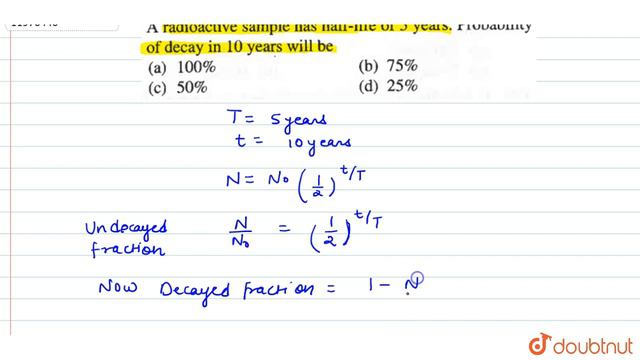 A radioactive sample has half-life of 5 years. Probability
of decay in 10 years will be
(a) 100% (b) 75%
(c) 50% (d) 25%
T = 5 years
t = 10 years
N = N₀ (1/2)^t/T
Undecayed fraction N/N₀ = (1/2)^t/T
Now Decayed fraction = 1 - N
doubtnut